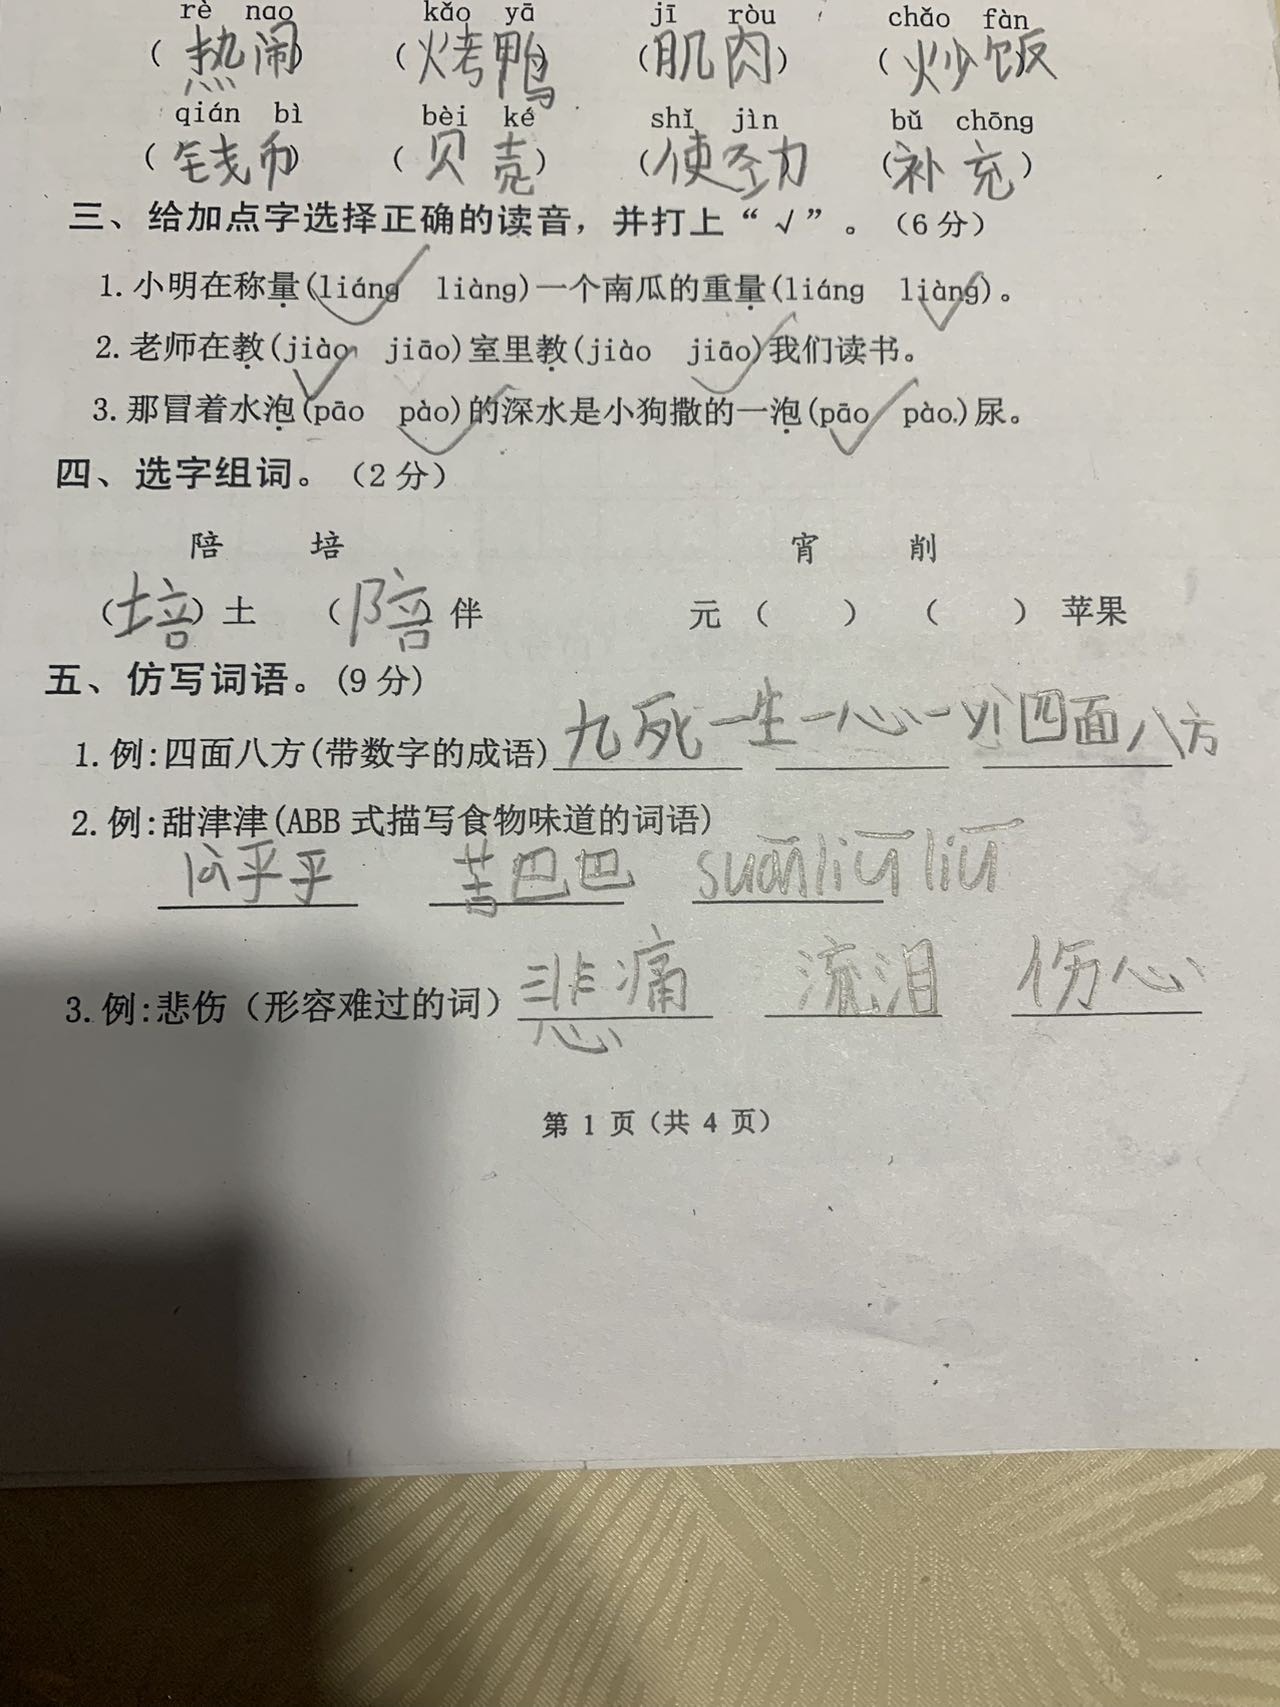 rè nao kǎo yā jī ròu chǎo fàn
(热闹) (烤鸭) (肌肉) (炒饭)
qián bì bèi ké shǐ jìn bǔ chōng
(钱币) (贝壳) (使劲) (补充)
三、给加点字选择正确的读音，并打上“√”。（6分）
1.小明在称量(liáng√ liàng)一个南瓜的重量(liáng liàng√)。
2.老师在教(jiào√ jiāo)室里教(jiào jiāo√)我们读书。
3.那冒着水泡(pāo pào√)的深水是小狗撒的一泡(pāo√ pào)尿。
四、选字组词。（2分）
陪 培 宵 削
（培）土 （陪 伴 元（ ） （ ）苹果
五、仿写词语。(9分)
1.例:四面八方(带数字的成语)九死一生 一心一yì 四面八方
2.例:甜津津(ABB式描写食物味道的词语)
乎乎 苦巴巴 suānliūliū
3.例:悲伤（形容难过的词）悲痛 流泪 伤心
第 1 页（共 4 页）